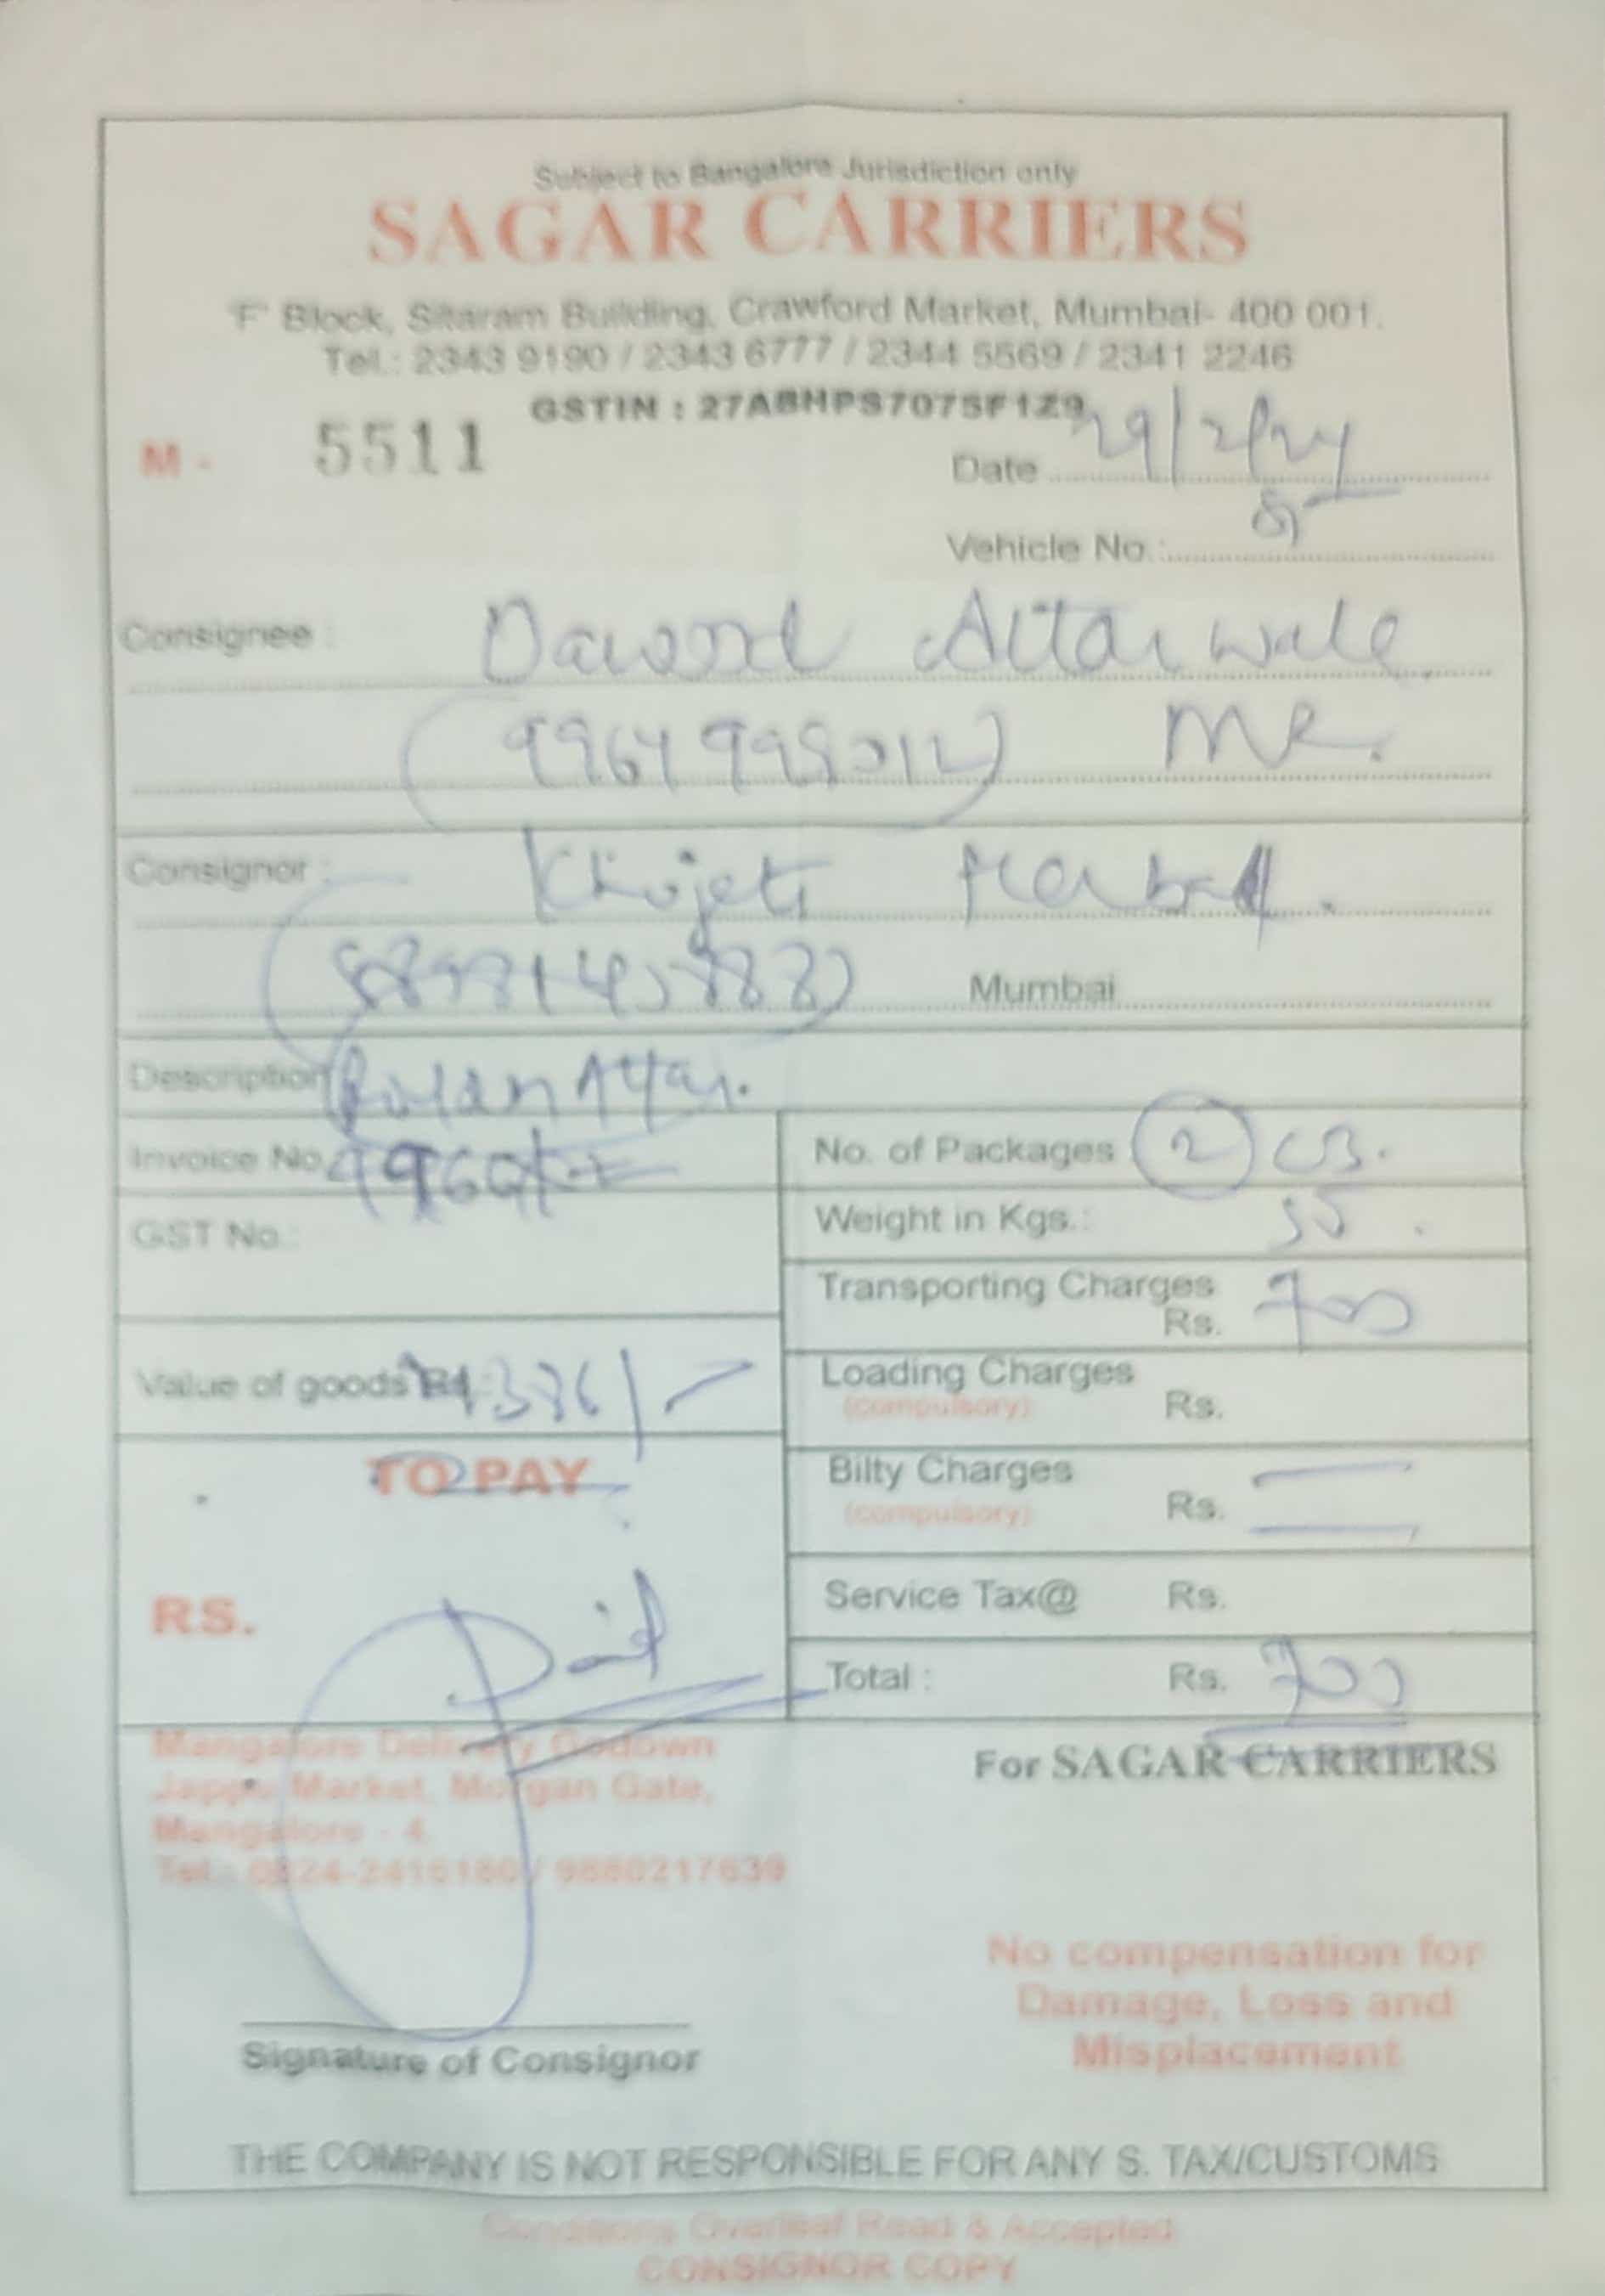 Subject to Bangalore Jurisdiction only
SAGAR CARRIERS
'F' Block, Sitaram Building, Crawford Market, Mumbai- 400 001.
Tel.: 2343 9190 / 2343 6777 / 2344 5569 / 2341 2246
GSTIN : 27ABHPS7075F1Z9
M - 5511
Date 29/2/24
Vehicle No.:
Consignee : Dawood Attar wale
MR.
Consignor :
Mumbai
Description Attar.
Invoice No.
No. of Packages (2) CB.
GST No.:
Weight in Kgs.: 55.
Transporting Charges
Rs. 700
Value of goods Rs.
Loading Charges
(compulsory) Rs.
TO PAY
Bilty Charges
(compulsory) Rs.
RS. Paid
Service Tax@ Rs.
Total : Rs. 700
Mangalore Delivery Godown
Jappu Market, Morgan Gate,
Mangalore - 4.
Tel.: 0824-2415180 / 9880217639
For SAGAR CARRIERS
No compensation for
Damage, Loss and
Misplacement
Signature of Consignor
THE COMPANY IS NOT RESPONSIBLE FOR ANY S. TAX/CUSTOMS
Conditions Overleaf Read & Accepted
CONSIGNOR COPY